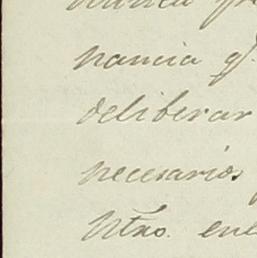 nancia q.
deliberar
necesarios
Ntro. ene